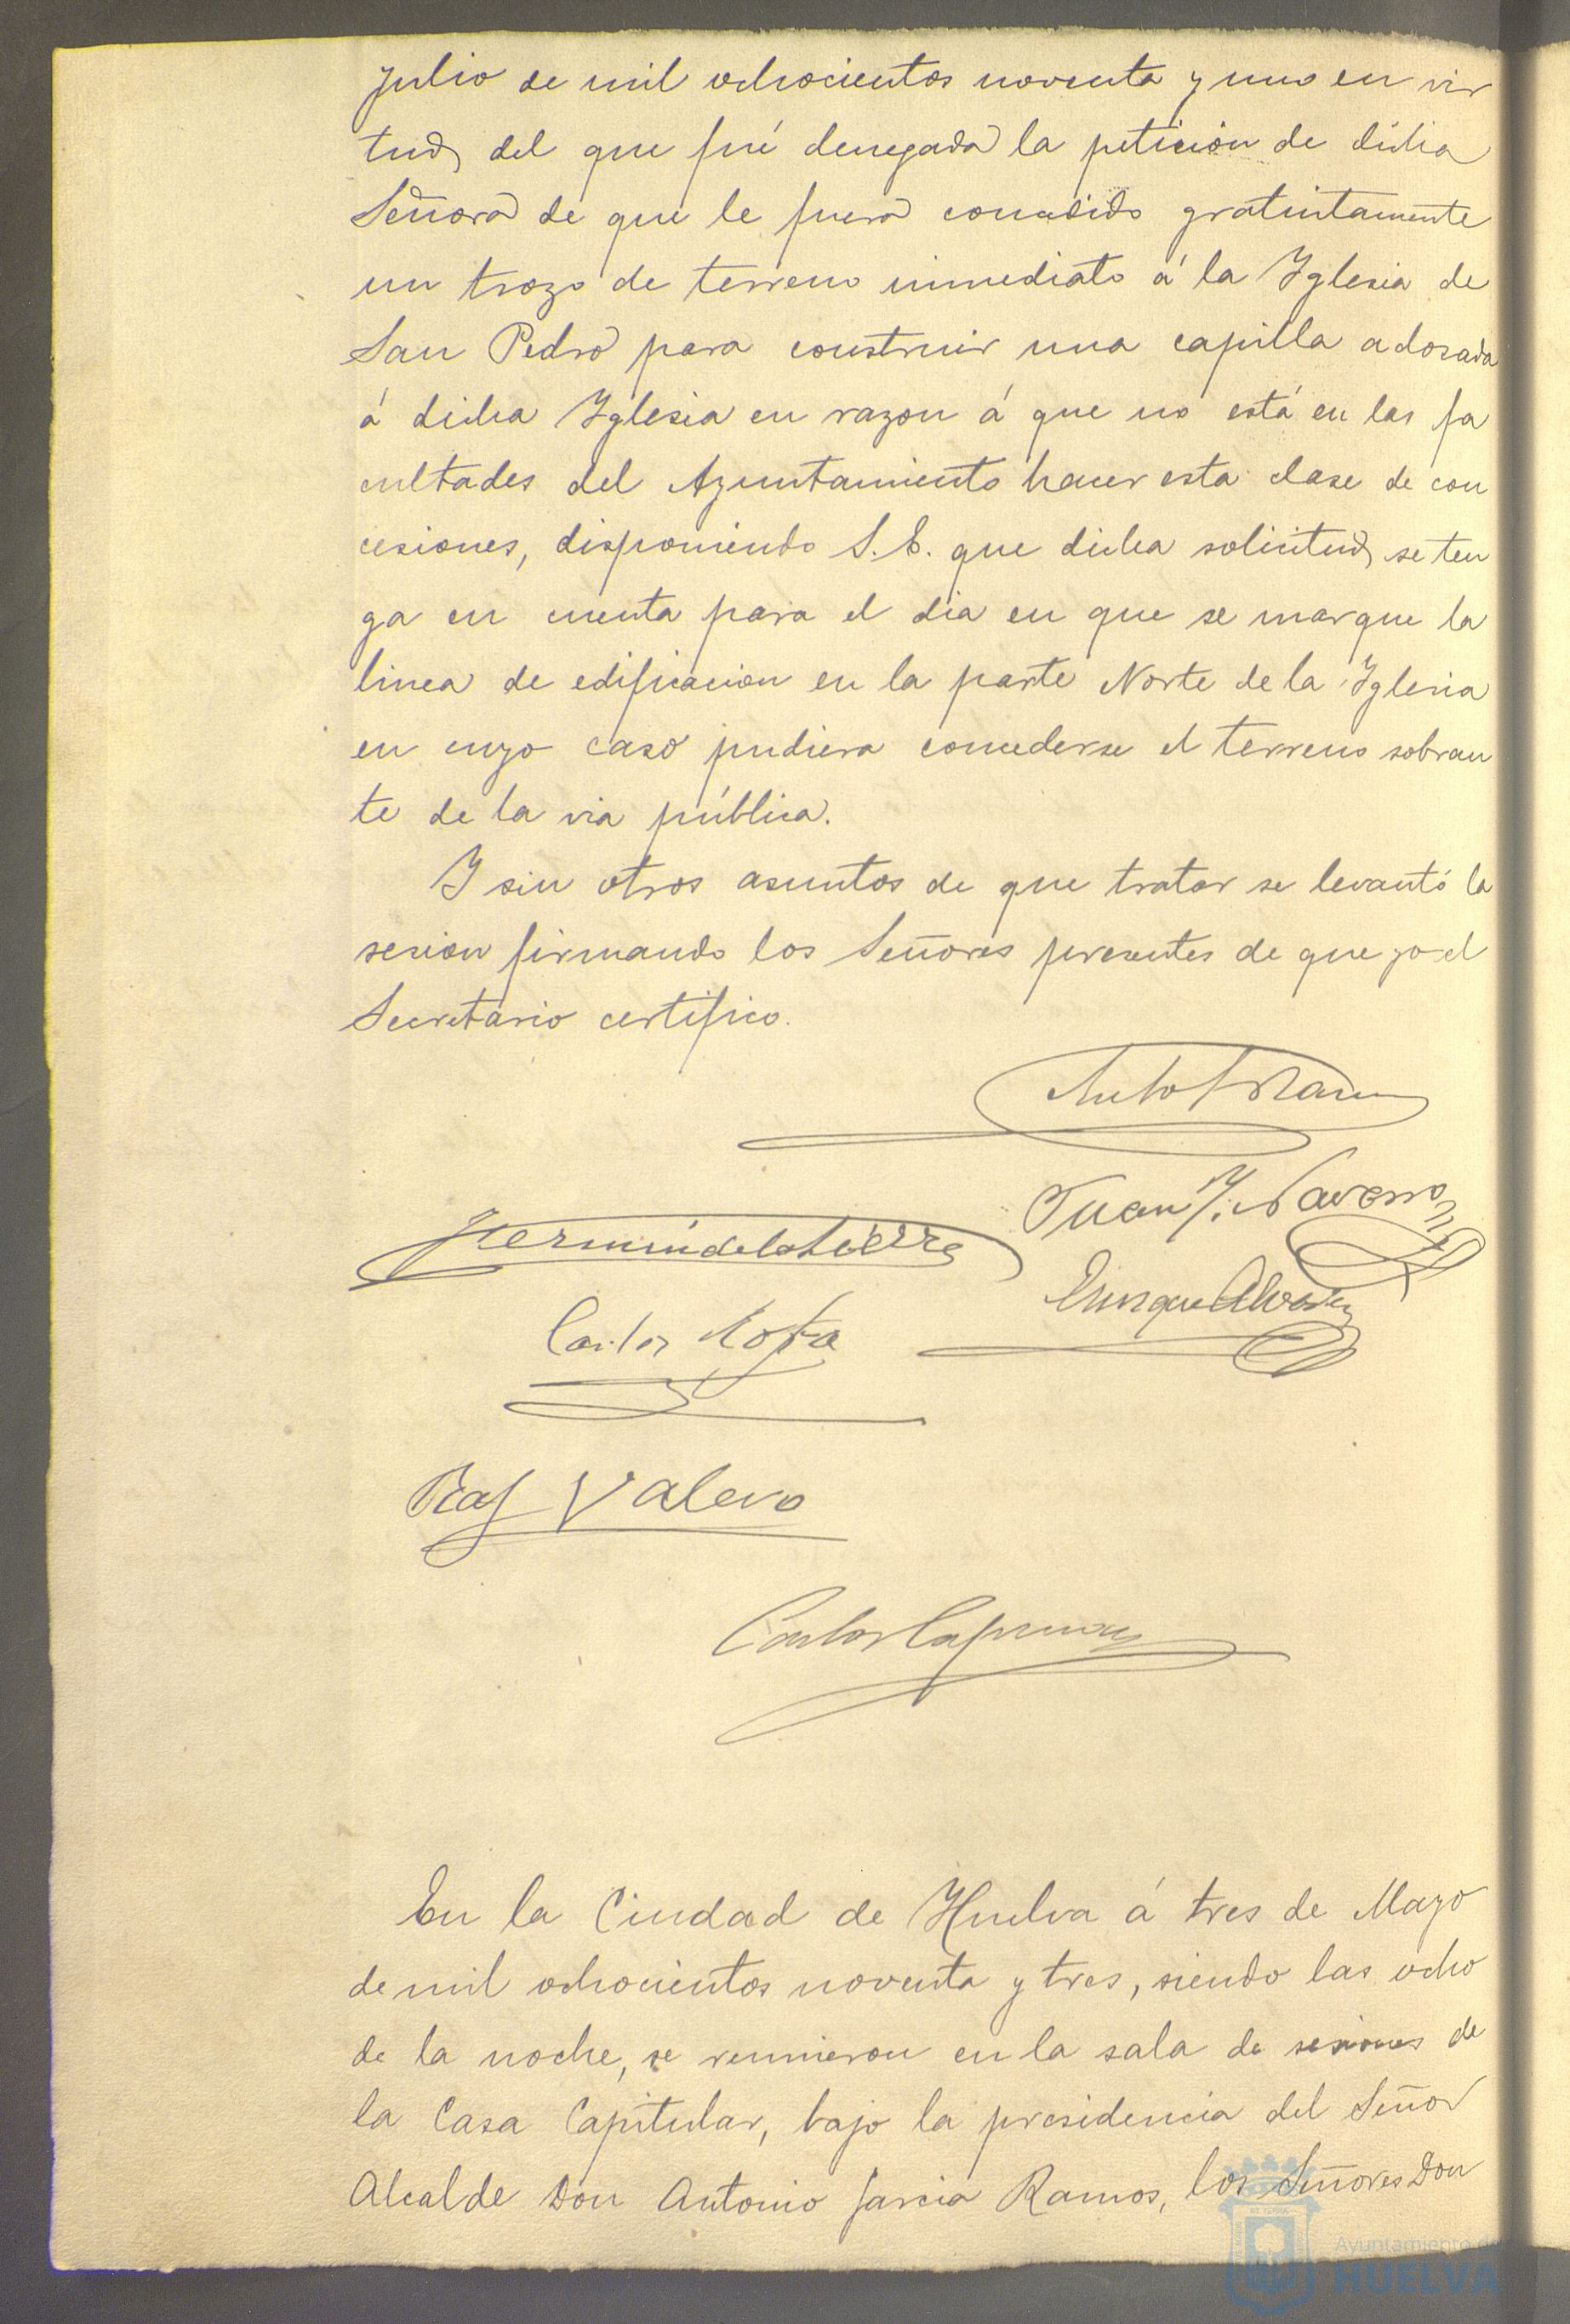 Julio de mil ochocientos noventa y uno en vir
tud del que fué denegada la petición de dicha
Señora de que le fuera concedido gratuitamente
un trozo de terreno inmediato á la Yglesia de
San Pedro para construir una capilla adosada
á dicha Yglesia en razon á que no está en las fa
cultades del Ayuntamiento hacer esta clase de con
cesiones, disponiendo S. E. que dicha solicitud se ten
ga en cuenta para el dia en que se marque la
linea de edificacion en la parte Norte de la Yglesia
en cuyo caso pudiera concederse el terreno sobran
te de la via pública.
Y sin otros asuntos de que tratar se levantó la
sesion firmando los Señores presentes de que yo el
Secretario certifico.
Juan Y. Navarro
Fermin de la Sierra
Enrique Alvarez
Carlos
Raf Valero
Carlos
En la Ciudad de Huelva á tres de Mayo
de mil ochocientos noventa y tres, siendo las ocho
de la noche, se reunieron en la sala de sesiones de
la Casa Capitular, bajo la presidencia del Señor
Alcalde Don Antonio Garcia Ramos, los Señores Don
Ayuntamiento de
HUELVA